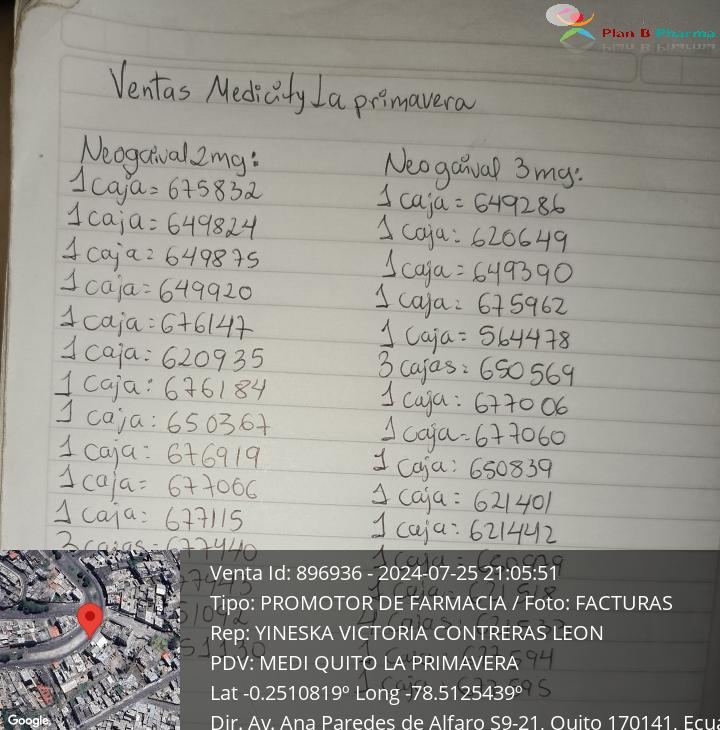 Plan B Pharma
Ventas Medicity La primavera
Neogaival 2mg:
1 caja = 675832
1 caja = 649824
1 caja = 649875
1 caja = 649920
1 caja = 676147
1 caja: 620935
1 caja: 676184
1 caja: 650367
1 caja: 676919
1 caja = 677066
1 caja: 677115
3 cajas = 677440
Neogaival 3mg:
1 caja = 649286
1 caja: 620649
1 caja = 649390
1 caja: 675962
1 caja = 564478
3 cajas: 650569
1 caja: 677006
1 caja = 677060
1 caja: 650839
1 caja = 621401
1 caja: 621442
Venta Id: 896936 - 2024-07-25 21:05:51
Tipo: PROMOTOR DE FARMACIA / Foto: FACTURAS
Rep: YINESKA VICTORIA CONTRERAS LEON
PDV: MEDI QUITO LA PRIMAVERA
Lat -0.2510819º Long -78.5125439º
Dir. Av. Ana Paredes de Alfaro S9-21, Quito 170141, Ecua
Google